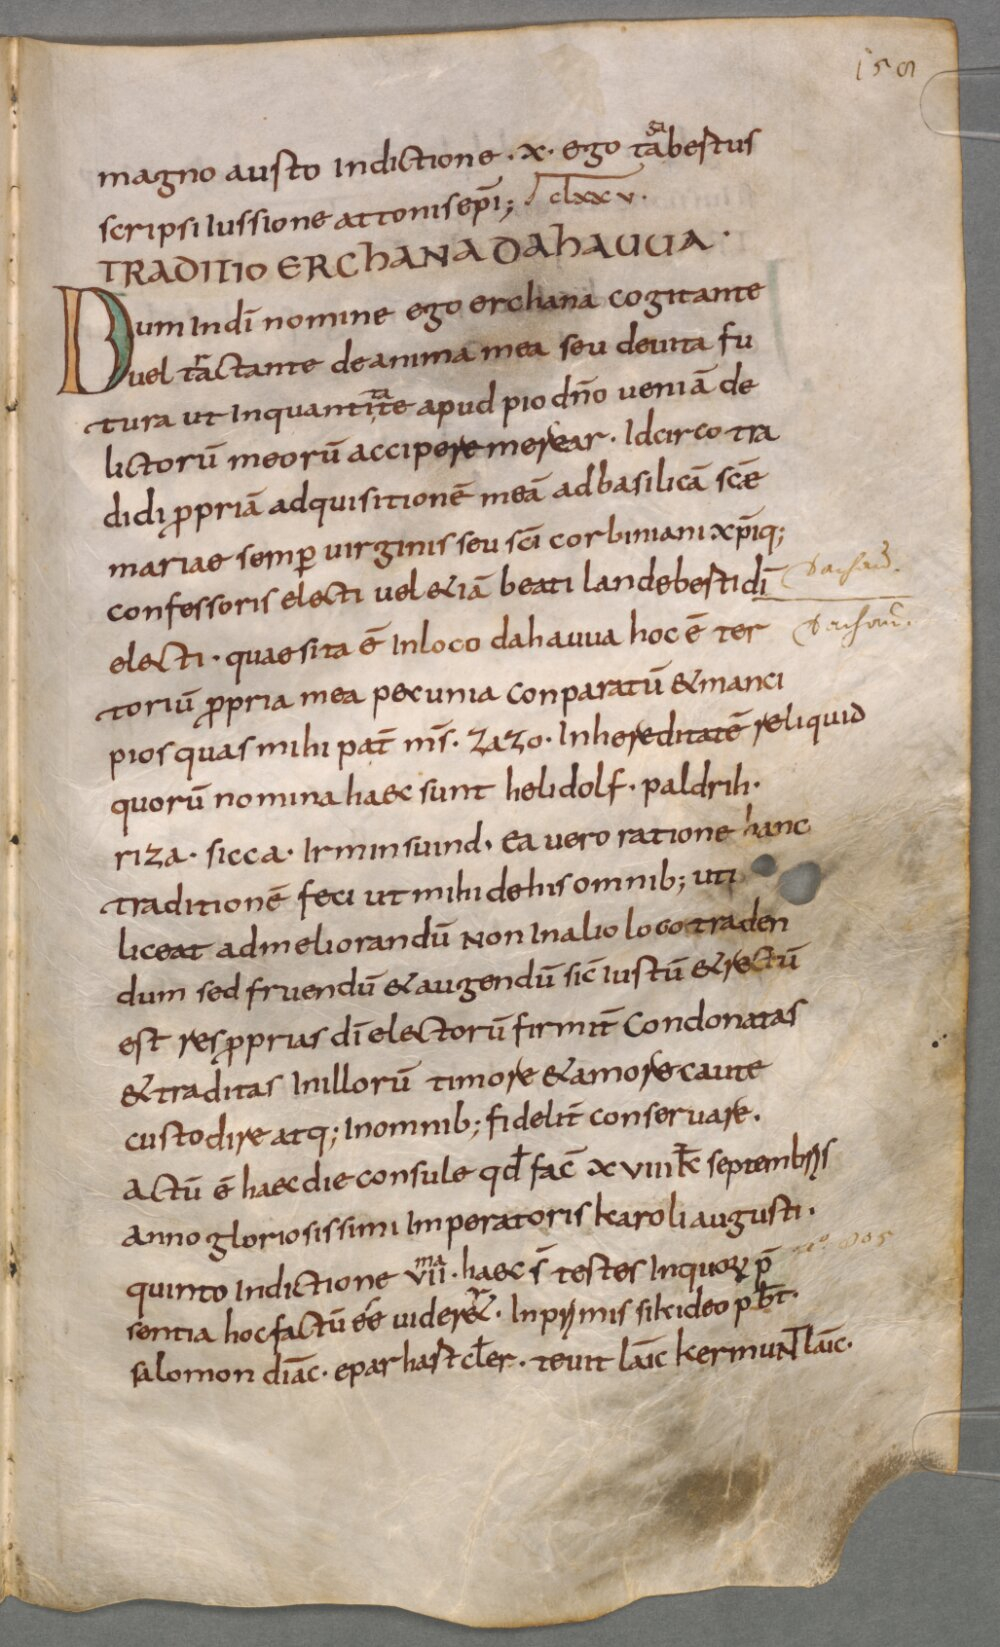 159
magno austo Indictione · x · ego tagabestus
scripsi Iussione attonis ep̄i; clxxv.
TRADITIO ERChANA DAhAUUA ·
Dum In dī nomine ego erchana cogitante
uel tractante de anima mea seu de uita fu
tura ut Inquantitate apud pio dn̄o ueniā de
lictorū meorū accipere merear · Idcirco tra
didi ꝓpriā adquisitionē meā ad basilicā scǣ
mariae semꝑ uirginis seu sc̄i corbiniani xp̄iq;
confessoris electi uel &iā beati landebesti dī
electi · quae sita ē In loco dahauua hoc ē ter
toriū ꝓpria mea pecunia conparatū & manci
pios quas mihi pat̄ ms̄ · zazo · In hereditatē reliquid
quorū nomina haec sunt helidolf · paldrih ·
riza · sicca · Irminsuind · Ea uero ratione hanc
traditionē feci ut mihi de his omnib; uti
liceat ad meliorandū Non In alio loco traden
dum sed fruendū & augendū sic̄ Iustū & rectū
est res ꝓprias dī electorū firmit̄ Condonatas
& traditas In illorū timore & amore caute
custodire atq; In omnib; fidelit̄ conseruare .
Actū ē haec die consule qd̄ fac̄ xviiii kł septembrīs
anno gloriosissimi Imperatoris karoli augusti ·
quinto Indictione vii ma · haec s̄ testes In quoꝝ p̄
sentia hoc factū eē uider&ur · In primis sikideo pb̄t ·
salomon diāc · eparhast cłer · teuit laīc kermunt laīc ·